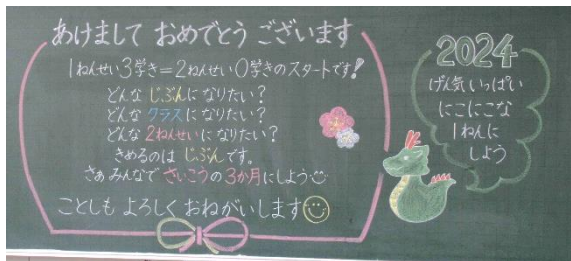 あけまして おめでとう ございます
1ねんせい3学き=2ねんせい0学きのスタートです!
どんな じぶんになりたい?
どんな クラスになりたい?
どんな 2ねんせいになりたい?
きめるのは じぶんです。
さぁ みんなで さいこうの3か月にしよう
ことしも よろしく おねがいします
2024
げん気 いっぱい
にこにこな
1ねんに
しよう